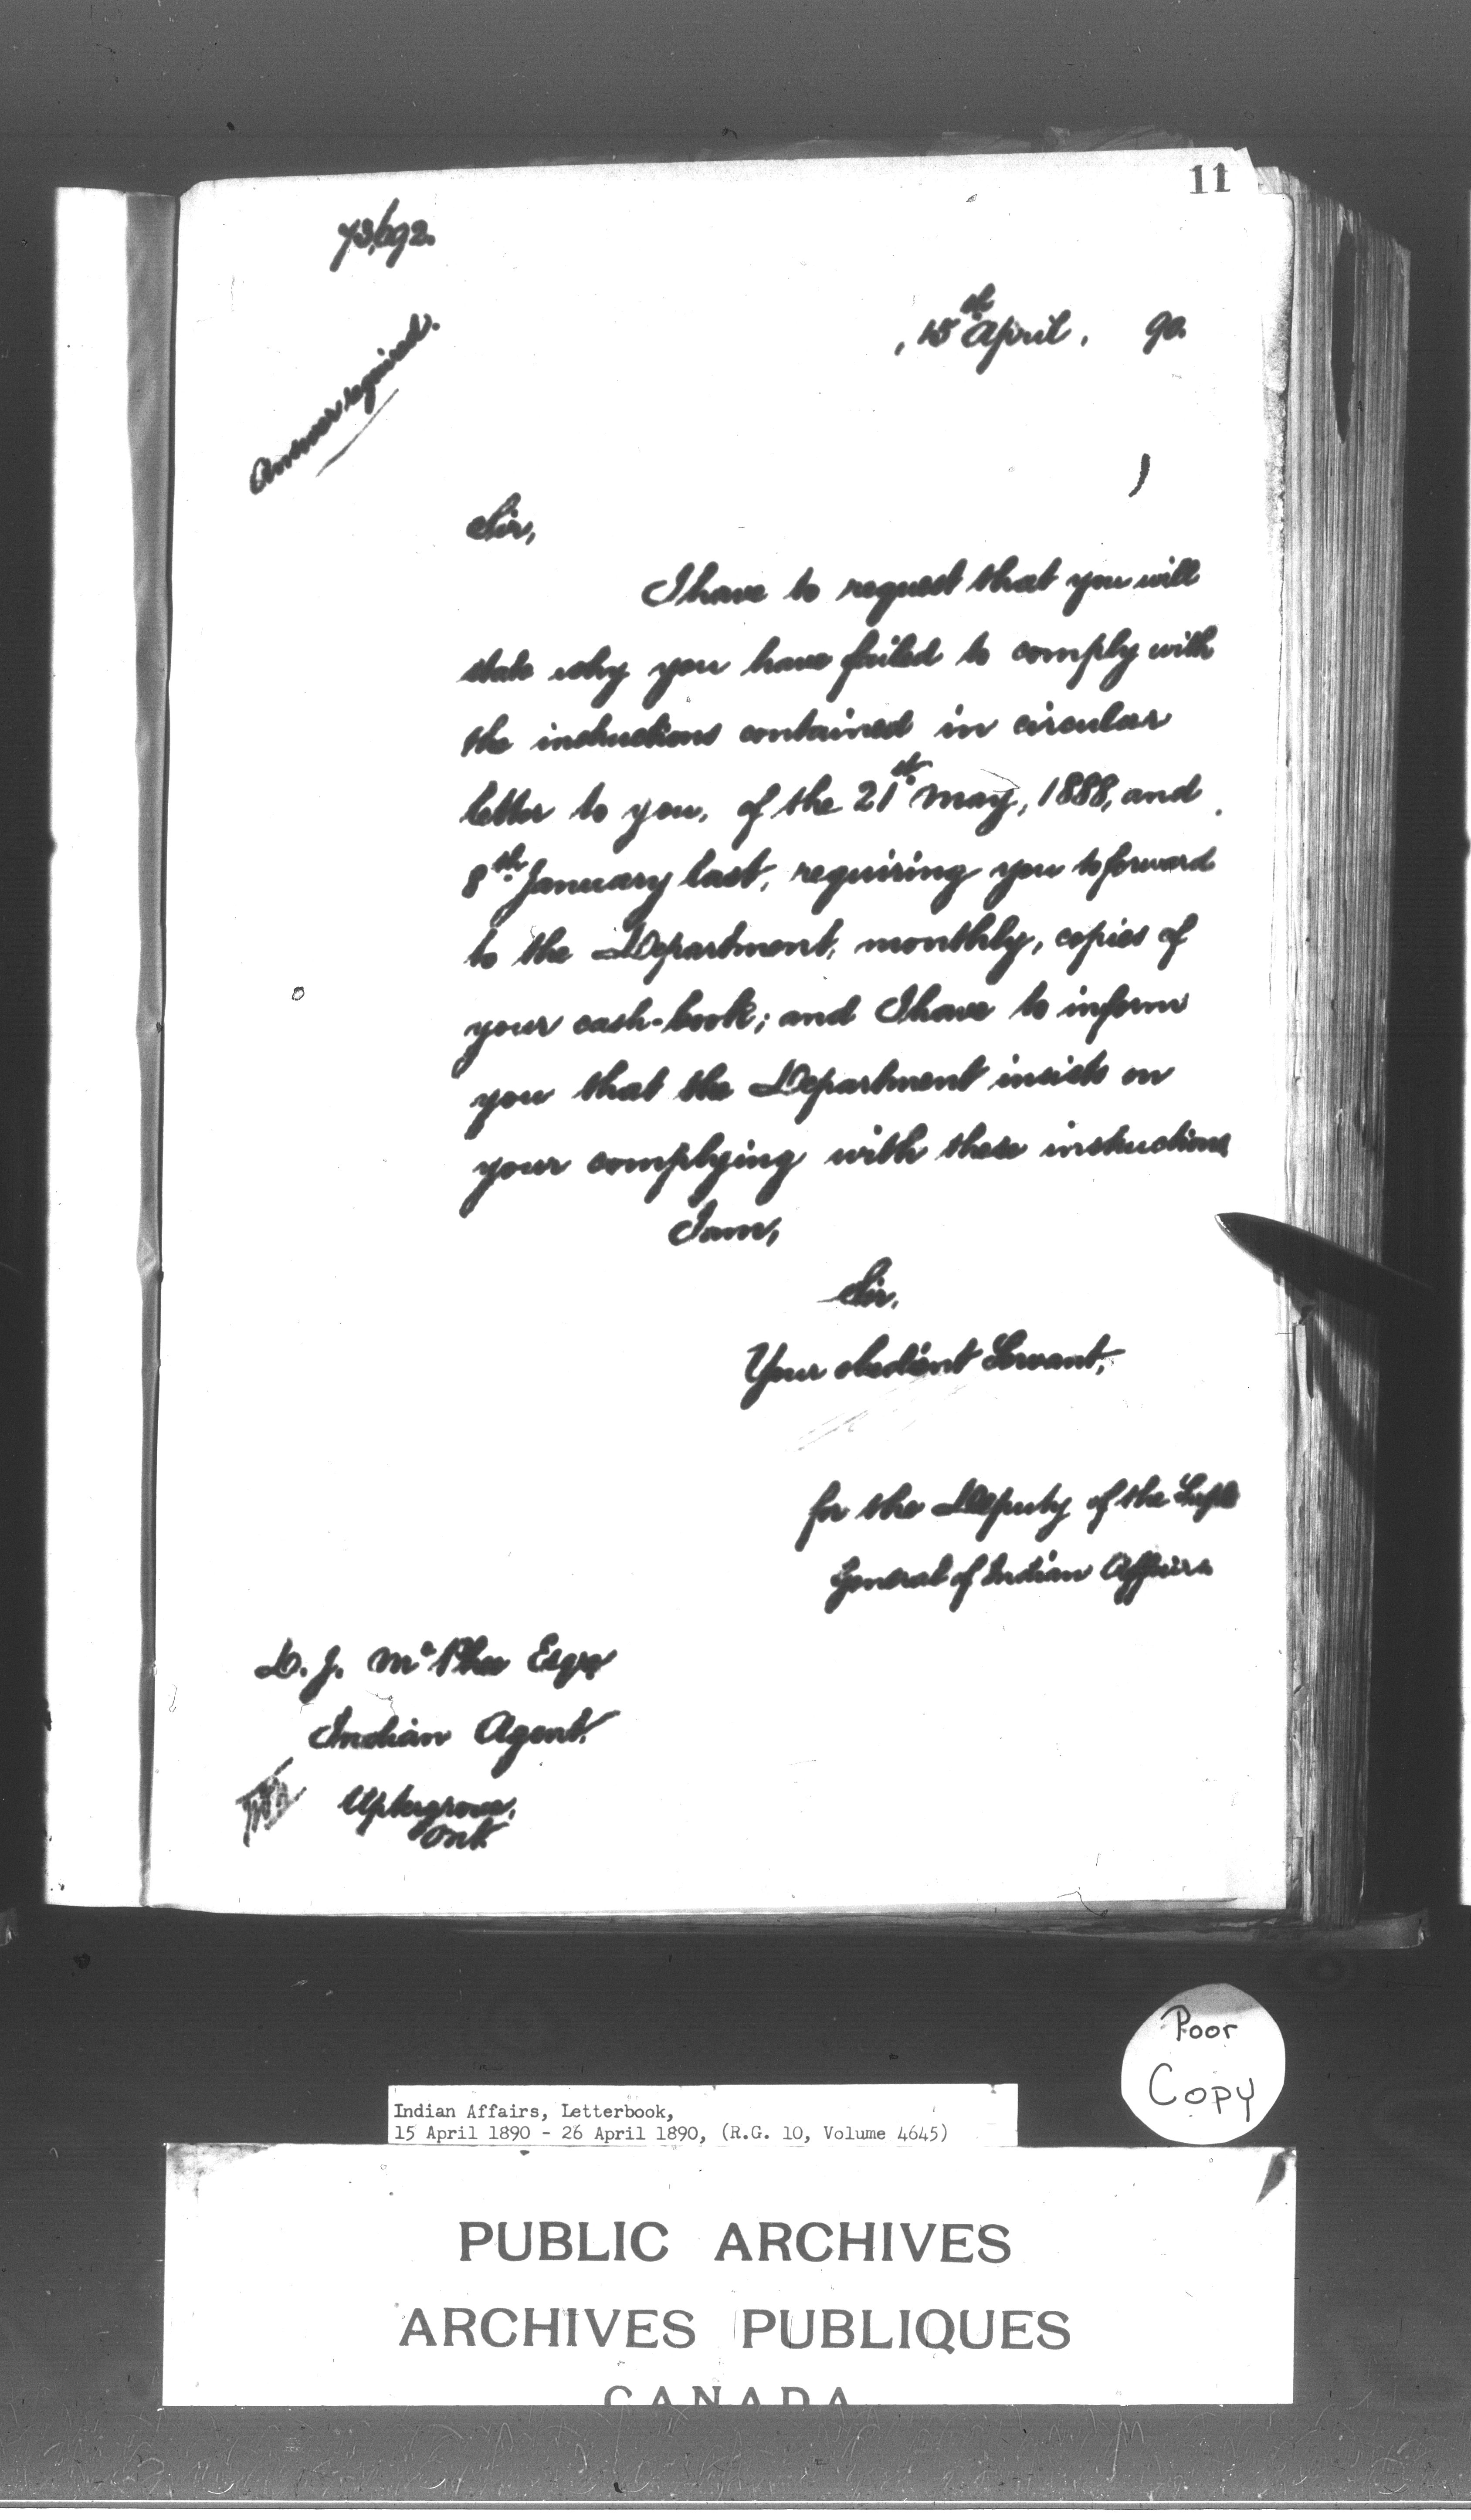 11
73,692.
15th April, 90.
Answer required.
Sir,
I have to request that you will
state why you have failed to comply with
the instructions contained in circular
letter to you, of the 21st May, 1888, and
8th January last, requiring you to forward
to the Department, monthly, copies of
your cash-book; and I have to inform
you that the Department insists on
your complying with these instructions
I am,
Sir,
Your obedient Servant,
for the Deputy of the Supt
General of Indian Affairs
D. J. McPhee Esqre
Indian Agent.
Uptergrove,
Ont.
Poor
Copy
Indian Affairs, Letterbook,
15 April 1890 - 26 April 1890, (R.G. 10, Volume 4645)
PUBLIC ARCHIVES
ARCHIVES PUBLIQUES
CANADA